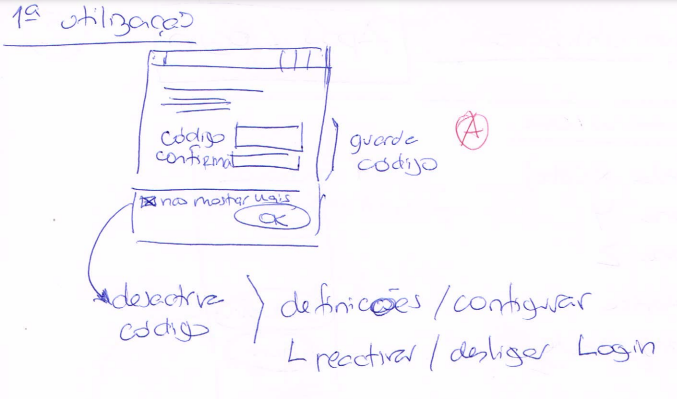 1ª utilização
código
confirma
guarda
código
A
não mostrar mais
OK
desactiva
código
definições / configurar
reactivar / desligar Login